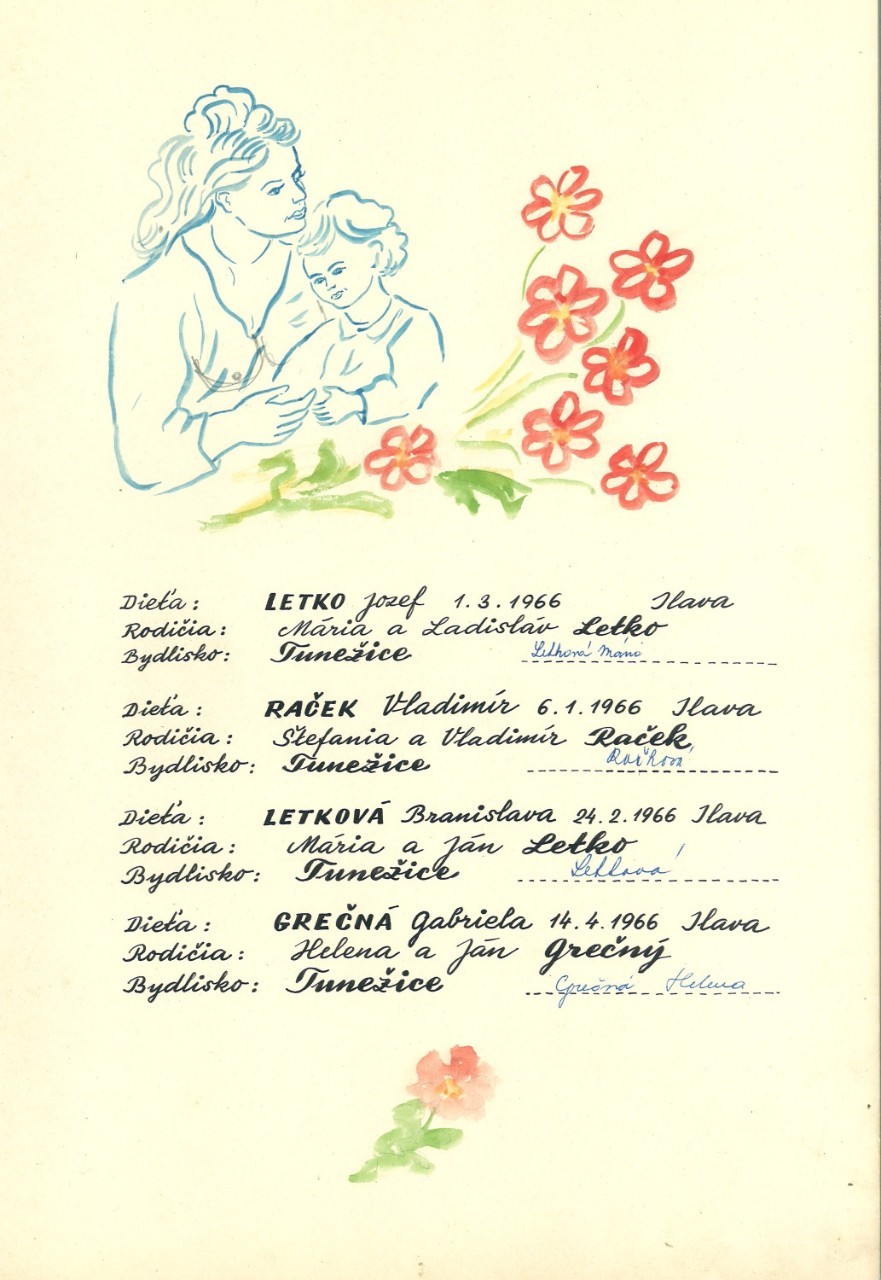 Dieťa: LETKO Jozef 1.3.1966 Ilava
Rodičia: Mária a Ladisláv Letko
Bydlisko: Tunežice Letková Mária
Dieťa: RAČEK Vladimír 6.1.1966 Ilava
Rodičia: Štefania a Vladimír Raček
Bydlisko: Tunežice
Dieťa: LETKOVÁ Branislava 24.2.1966 Ilava
Rodičia: Mária a Ján Letko
Bydlisko: Tunežice Letková
Dieťa: GREČNÁ Gabriela 14.4.1966 Ilava
Rodičia: Helena a Ján Grečný
Bydlisko: Tunežice Grečná Helena